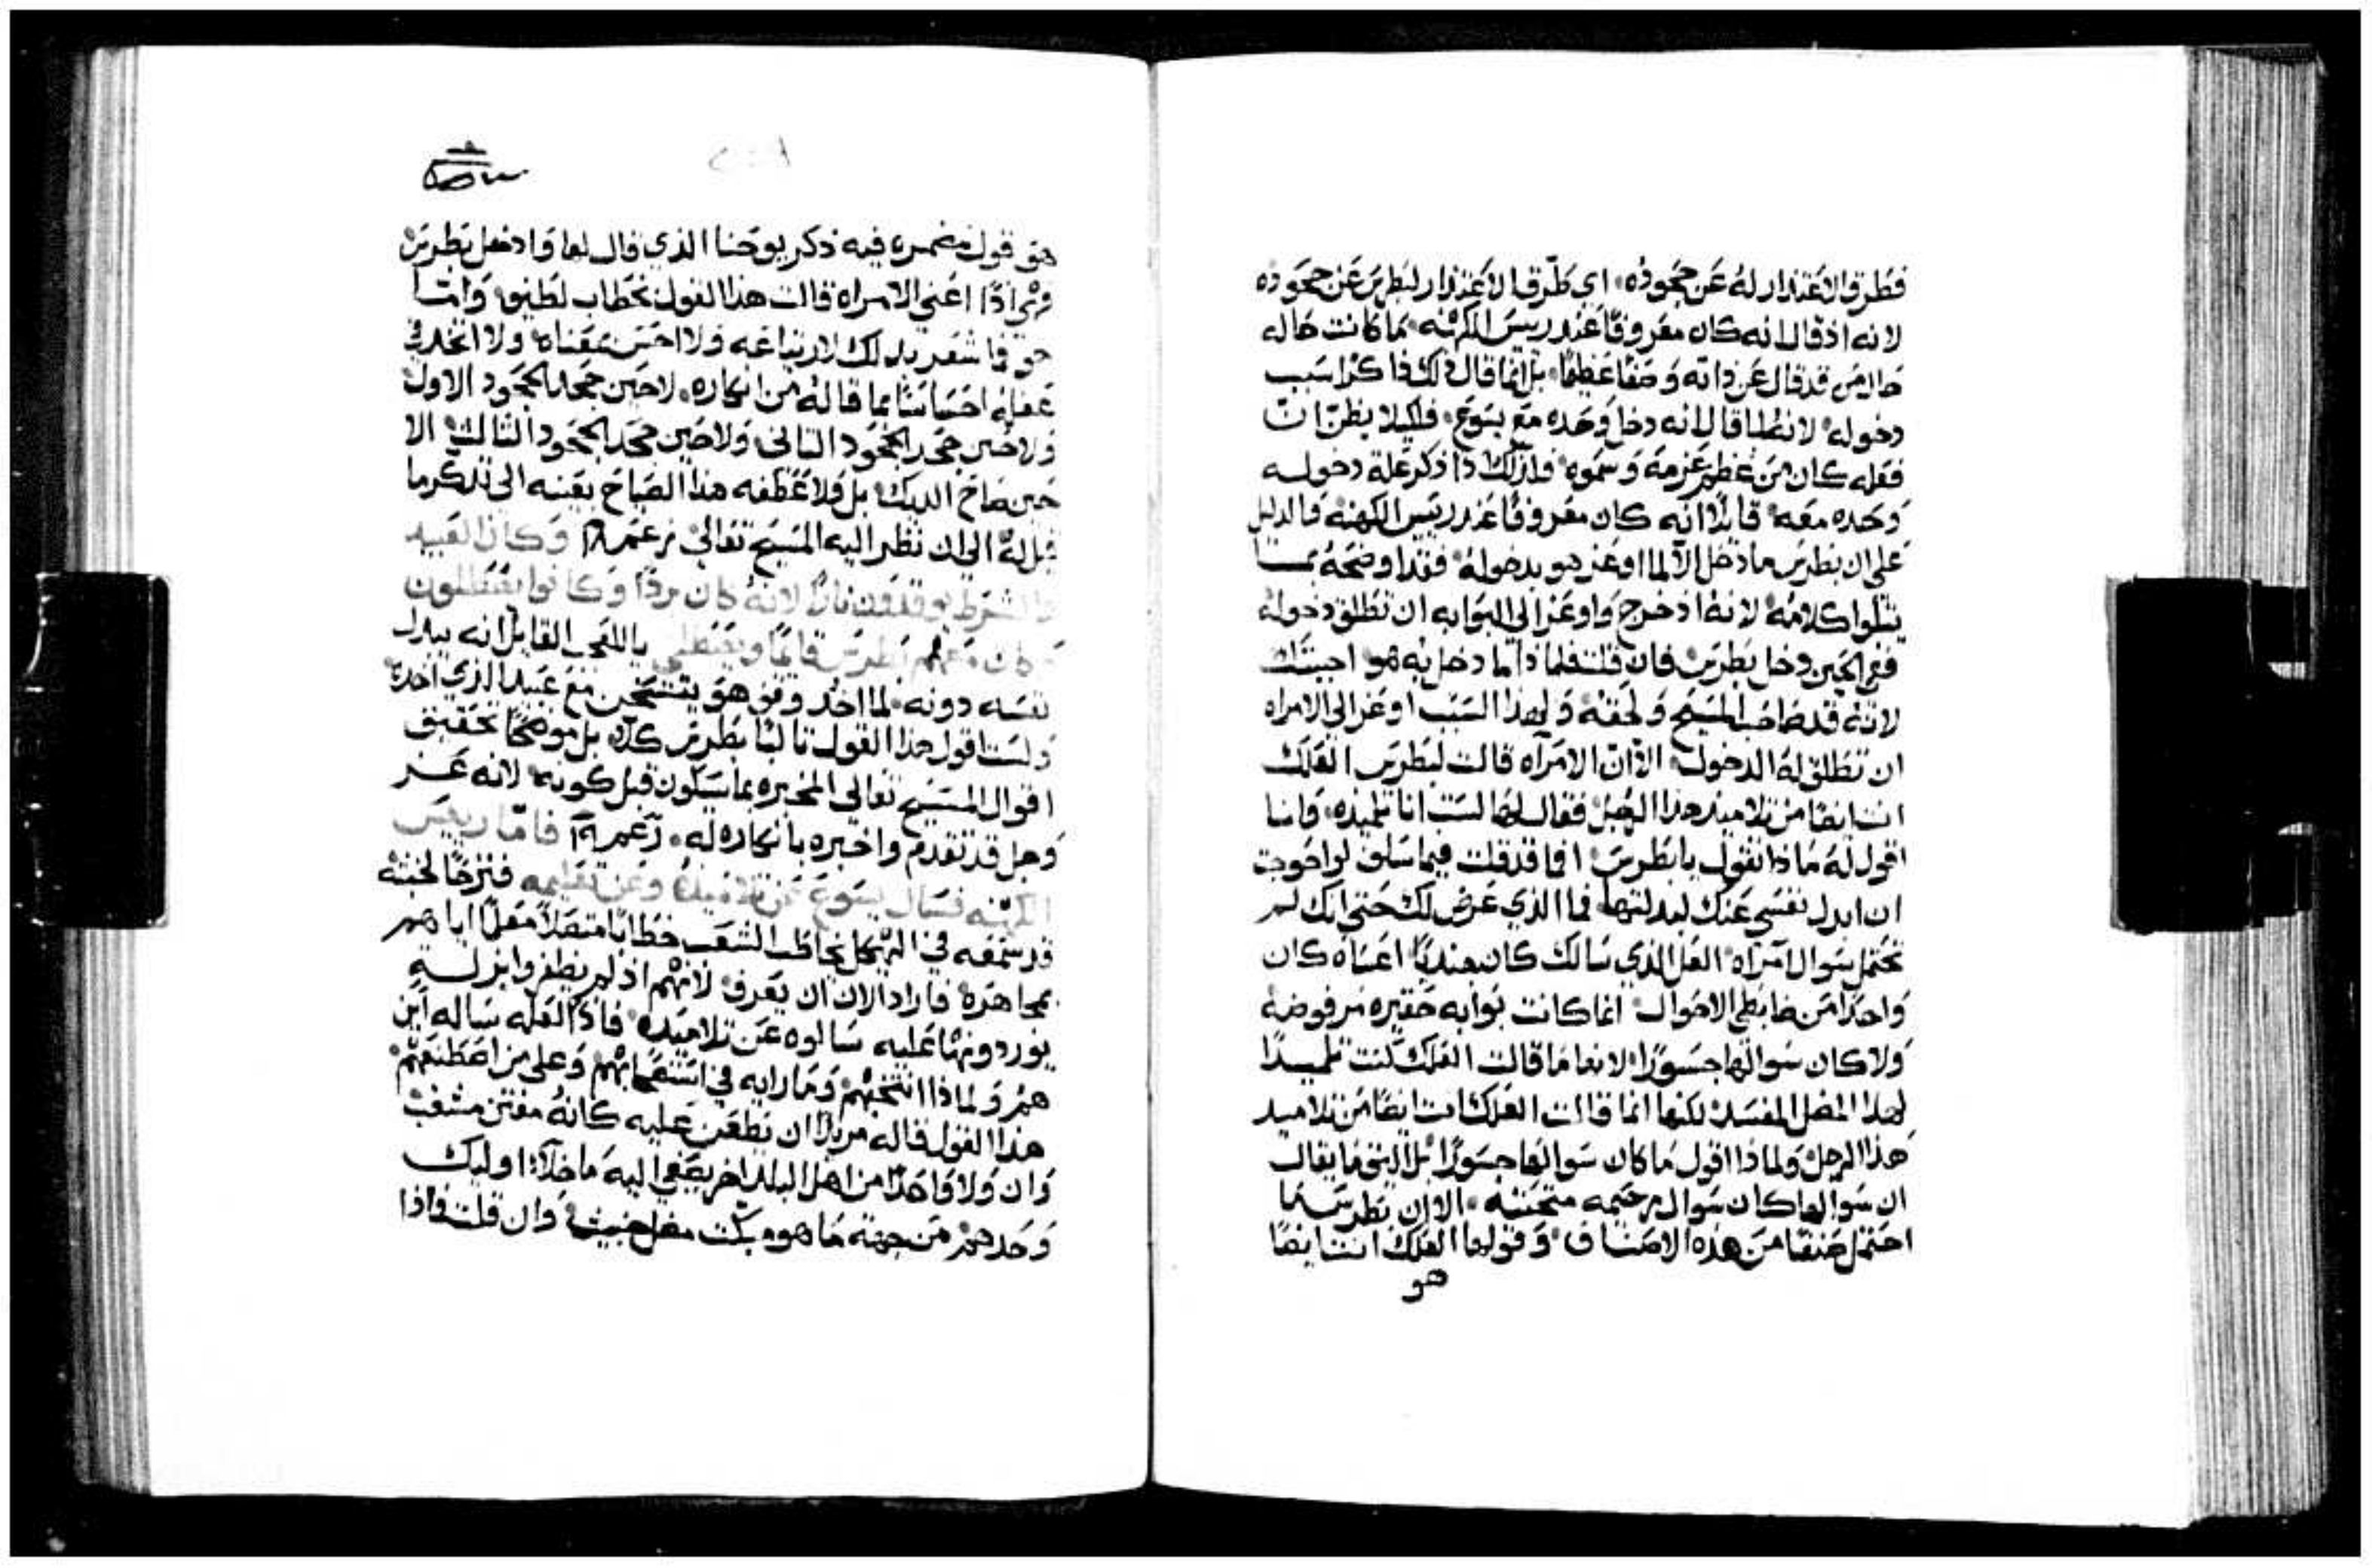 فطرق الاعتذار له عن جحوده، اي طرق الاعتذار لبطرس عن جحوده
لانه اذ قال انه كان معروفا عند رييس الكهنه، ما كانت حاله
حال من قد قال عن ذاته وصفا عظيما، بل انما قال ذلك ذاكرا سبب
دخوله، لانه لما قال انه دخل وحده مع يسوع، فلكيلا يظن ان
فعله كان من عظم عزمه وسموه، فلذلك ذا ذكر علة دخوله
وحده معه، قايلا انه كان معروفا عند رييس الكهنه فالدليل
على ان بطرس ما دخل الا لما اوعز هو بدخوله، فقد اوضحه بما
يتلوا كلامه، لانه اذ خرج واوعز الى البوابه ان تطلق دخوله
ففي الحين دخل بطرس، فان قلت فلماذا لما دخل به هو اجبتك
لانه قد صاحب المسيح ولحقه، ولهذا السبب اوعز الى الامراه
ان تطلق له الدخول، الا ان الامراه قالت لبطرس العلك
انت ايضا من تلاميذ هذا الرجل، فقال لها لست انا تلميذه، وانا
اقول له ماذا تقول يا بطرس، افما قد قلت فيما سلف لو احوجت
ان ابدل نفسي عنك لبدلتها، فما الذي عرض لك حتى انك لم
تحتمل سوال امراه، العل الذي سالك كان جنديا، اعساه كان
واحدا من ضابطي الاحوال، انما كانت بوابه حقيره مرفوضه
ولا كان سوالها جسورا، لانها ما قالت العلك كنت تلميدا
لهذا المضل المفسد، لكنها انما قالت العلك انت ايضا من تلاميد
هذا الرجل، ولماذا اقول ما كان سوالها جسورا، بل اليق ما يقال
ان سوالها كان سوال مرحمه متحننه، الا ان بطرس ما
احتمل صنفا من هذه الاصناف، وقولها العلك انت ايضا
هو
هو قول مضمره فيه ذكر يوحنا الذي قال لها وادخل بطرس
وهي اذا اعني الامراه قالت هذا القول بخطاب لطيف، واما
هو فما شعر بذلك لارتياعه ولا احس بمعناه، ولا اتخذ في
عقله احساسا بما قاله من انكاره، لا حين جحد الجحود الاول
ولا حين جحد الجحود الثاني، ولا حين جحد الجحود الثالث الا
حين صاح الديك، بل ولا عطفه هذا الصياح بعينه الى تذكر ما
قيل له، الى ان نظر اليه المسيح تعالى، وكان العبيد
والشرط يوقدون نارا لانه كان بردا وكانوا يصطلون
وكان معهم بطرس قايما ويصطلي، القايل انه يبذل
نفسه دونه، لما اخذ وقف هو يتسخن مع عبيد الذي اخذه
ولست اقول هذا القول ثالبا بطرس كلا، بل موضحا تحقيق
اقوال المسيح تعالى المخبره بما سيكون قبل كونه، لانه عز
وجل قد تقدم واخبره بانكاره له، فاما رييس
الكهنه فسال يسوع عن تلاميذه وعن تعليمه،
قد سمعه في الهيكل يخاطب الشعب خطابا متصلا معلما اياهم
بمجاهره، فاراد الان ان يعرف، لانهم اذ لم يظفروا بزله
يوردونها عليه سالوه عن تلاميذه، ساله اين
هم، ولماذا انتخبهم، وما رايه في
هذا القول قاله مريدا ان يطعن عليه كانه مفتن مشغب
وان ولا واحدا من اهل البلد اخر يصغي اليه ما خلا اوليك
وحدهم، من جهة ما هو وان قلت فاذا